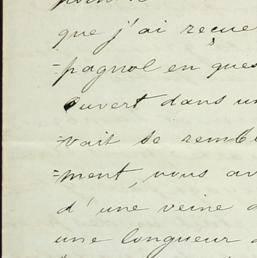 que j'ai reçue
=pagnol en ques
ouvert dans un
=vait se remb
=ment, vous av
d'une veine d
une longueur d